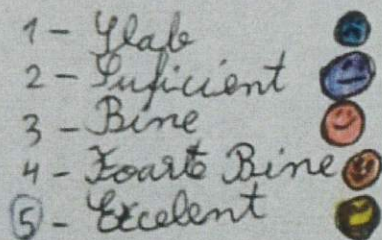 1 - Slab
2 - Suficient
3 - Bine
4 - Foarte Bine
5 - Excelent